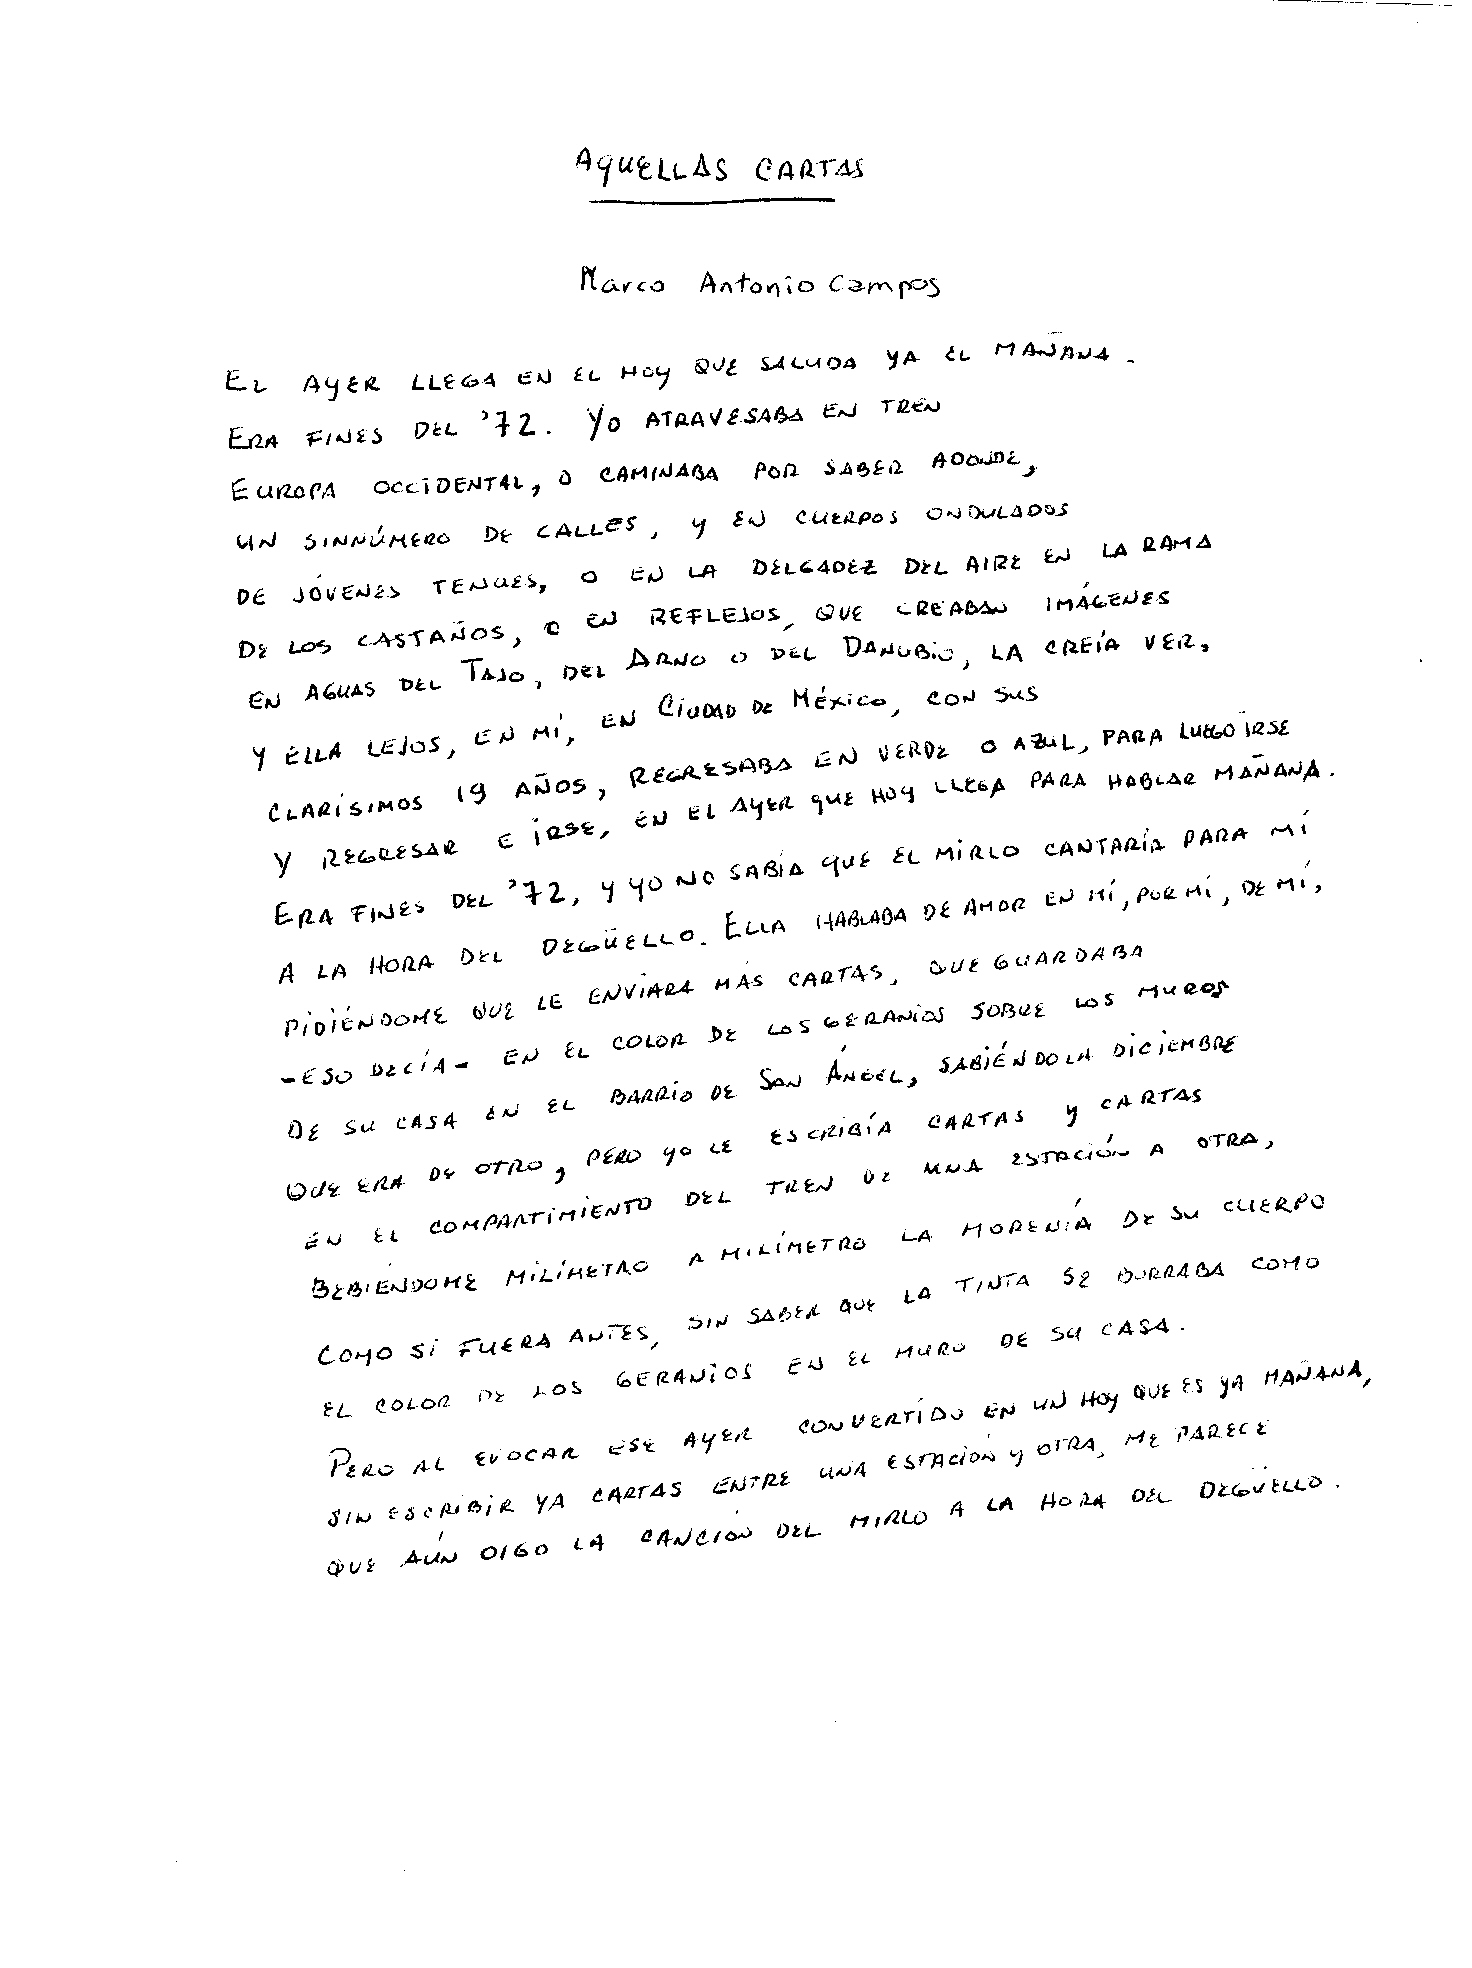 AQUELLAS CARTAS
Marco Antonio Campos
EL AYER LLEGA EN EL HOY QUE SALUDA YA EL MAÑANA.
ERA FINES DEL '72. YO ATRAVESABA EN TREN
EUROPA OCCIDENTAL, O CAMINABA POR SABER ADONDE,
UN SINNÚMERO DE CALLES, Y EN CUERPOS ONDULADOS
DE JÓVENES TENUES, O EN LA DELGADEZ DEL AIRE EN LA RAMA
DE LOS CASTAÑOS, O EN REFLEJOS, QUE CREABAN IMÁGENES
EN AGUAS DEL TAJO, DEL ARNO O DEL DANUBIO, LA CREÍA VER,
Y ELLA LEJOS, EN MÍ, EN CIUDAD DE MÉXICO, CON SUS
CLARÍSIMOS 19 AÑOS, REGRESABA EN VERDE O AZUL, PARA LUEGO IRSE
Y REGRESAR E IRSE, EN EL AYER QUE HOY LLEGA PARA HABLAR MAÑANA.
ERA FINES DEL '72, Y YO NO SABÍA QUE EL MIRLO CANTARÍA PARA MÍ
A LA HORA DEL DEGÜELLO. ELLA HABLABA DE AMOR EN MÍ, POR MÍ, DE MÍ,
PIDIÉNDOME QUE LE ENVIARA MÁS CARTAS, QUE GUARDABA
-ESO DECÍA- EN EL COLOR DE LOS GERANIOS SOBRE LOS MUROS
DE SU CASA EN EL BARRIO DE SAN ÁNGEL, SABIÉNDOLA DICIEMBRE
QUE ERA DE OTRO, PERO YO LE ESCRIBÍA CARTAS Y CARTAS
EN EL COMPARTIMIENTO DEL TREN DE UNA ESTACIÓN A OTRA,
BEBIÉNDOME MILÍMETRO A MILÍMETRO LA MORENÍA DE SU CUERPO
COMO SI FUERA ANTES, SIN SABER QUE LA TINTA SE BORRABA COMO
EL COLOR DE LOS GERANIOS EN EL MURO DE SU CASA.
PERO AL EVOCAR ESE AYER CONVERTIDO EN UN HOY QUE ES YA MAÑANA,
SIN ESCRIBIR YA CARTAS ENTRE UNA ESTACIÓN Y OTRA, ME PARECE
QUE AÚN OIGO LA CANCIÓN DEL MIRLO A LA HORA DEL DEGÜELLO.